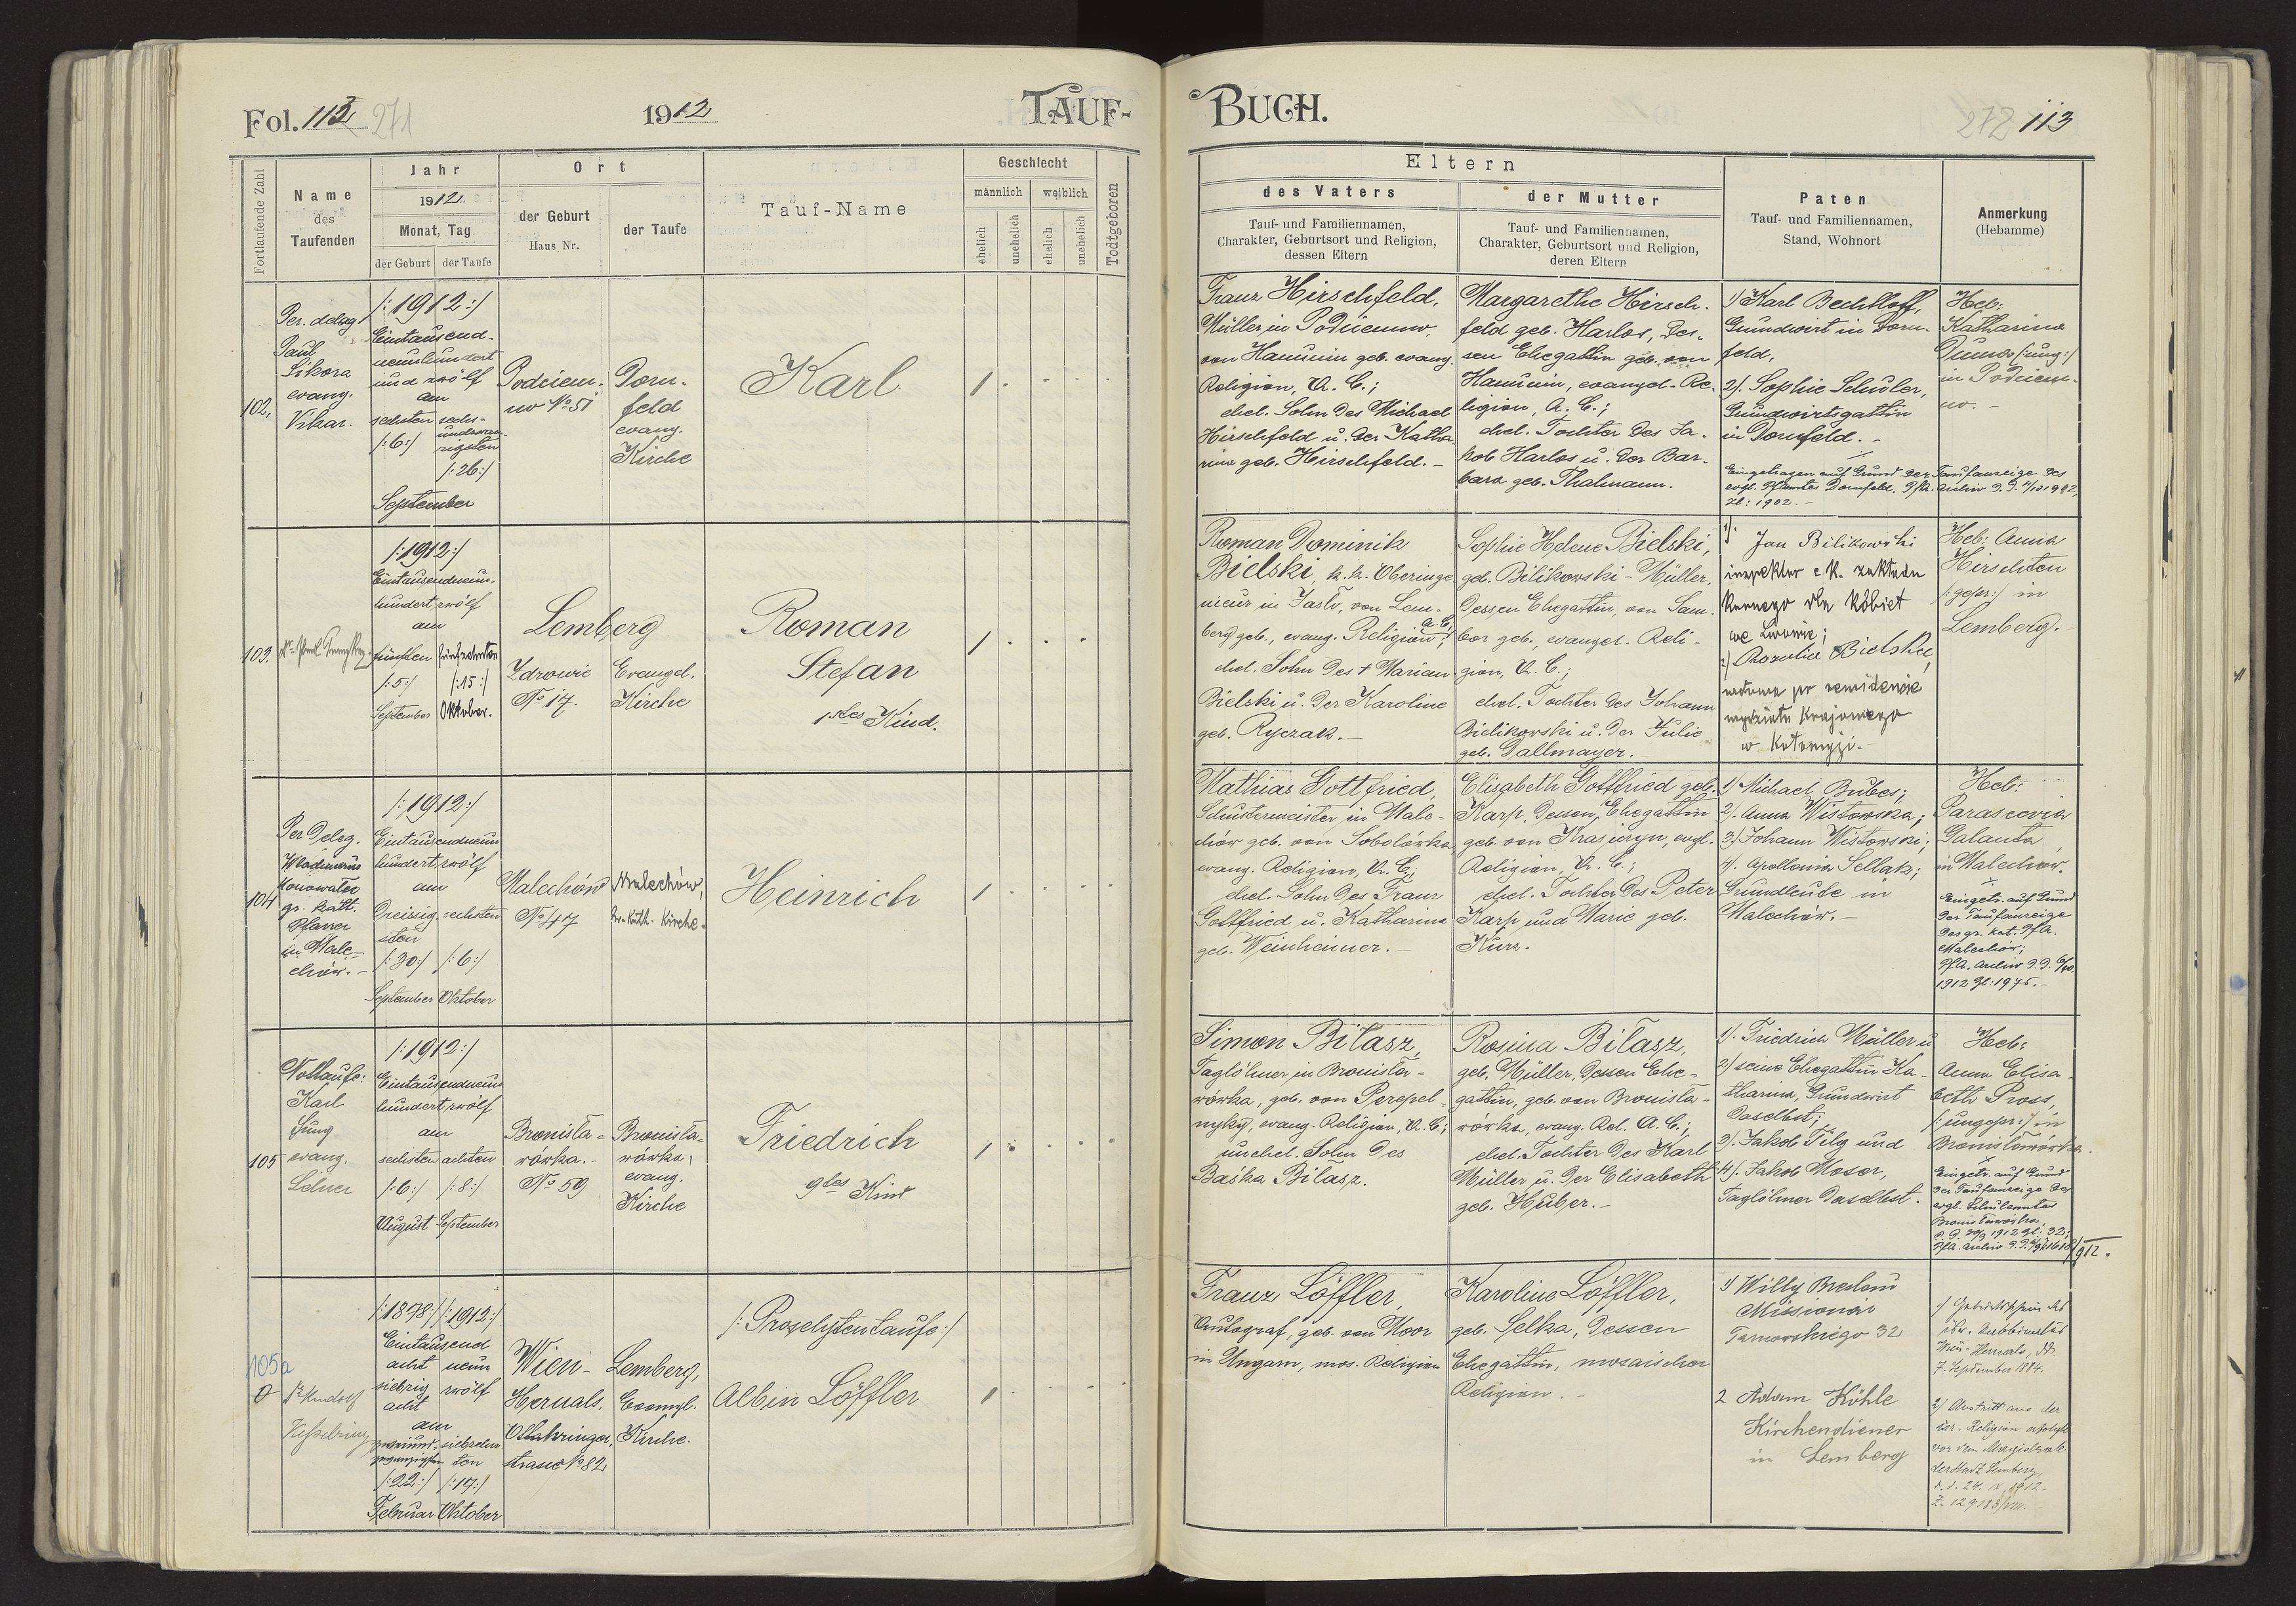 Fol. 113 271
1912
TAUF-
Fortlaufende Zahl
Name
des
Taufenden
Jahr
1912
Monat, Tag
der Geburt
der Taufe
Ort
der Geburt
Haus Nr.
der Taufe
Tauf-Name
Geschlecht
männlich
weiblich
ehelich
unehelich
ehelich
unehelich
Todtgeboren
102,
Per. deleg
Paul
Sikora
evang.
Vikar.
/:1912:/
Eintausend-
neunhundert
und zwölf
am
sechsten
/:6:/
sechs-
undzwan-
zigsten
/:26:/
September
Podciem-
no No 51
Dorn-
feld
evang.
Kirche
Karl
1
103.
/:1912:/
Eintausendneun-
hundert zwölf
am
fünften
/:5:/
September
fünfzehnten
/:15:/
Oktober.
Lemberg
Zdrowie
No 17.
Evangel.
Kirche
Roman
Stefan
1stes Kind.
1
104
Per Deleg.
Wladimirus
Konowalec
gr. kath.
Pfarrer
in Male-
chów.-
/:1912:/
Eintausendneun
hundert zwölf
am
Dreissig-
sten
/:30:/
September
sechsten
/:6:/
Oktober
Malechów
No 47
Malechów,
gr.-kath. Kirche.
Heinrich
1
105
Nottaufe:
Karl
Jung
evang.
Lehrer
/:1912:/
Eintausendneun
hundert zwölf
am
sechsten
/:6:/
August
achten
/:8:/
September
Bronisła-
wówka.-
No 59
Bronisła-
wówka,
evang.
Kirche
Friedrich
9tes Kind
1
105a
0
Dr Rudolf
Kesselring
/:1878:/
/:1912:/
Eintausend
acht
siebzig
acht
neun
zwölf
am
zweiund-
zwanzigsten
/:22:/
Februar
siebzehn
ten
/:17:/
Oktober
Wien-
Hernals.
Ottakringer
strasse No 82
Lemberg,
Evangl.
Kirche.
/:Proselytentaufe:/
Albin Löffler
1
BUCH.
272 113
Eltern
des Vaters
Tauf- und Familiennamen,
Charakter, Geburtsort und Religion,
dessen Eltern
der Mutter
Tauf- und Familiennamen,
Charakter, Geburtsort und Religion,
deren Eltern
Paten
Tauf- und Familiennamen,
Stand, Wohnort
Anmerkung
(Hebamme)
Franz Hirschfeld,
Müller in Podciemno,
von Hanunin geb. evang.
Religion, A. C.;
ehel. Sohn des Michael
Hirschfeld u. der Katha-
rina geb. Hirschfeld.-
Margarethe Hirsch-
feld geb. Harlos, des-
sen Ehegattin geb. von
Hanunin, evangel. Re-
ligion, A. C.;
ehel. Tochter des Ja-
kob Harlos u. der Bar-
bara geb. Thalmann.
1) Karl Bechtloff,
Grundwirt in Dorn-
feld,
2). Sophie Schuler,
Grundwirtsgattin
in Dornfeld.-
Eingetragen auf Grund der Taufanzeige des
evgl. Pfarramtes Dornfeld. Pfa. Archiv
Zl: 1902.-
Heb:
Katharina
/:ung:/
in Podciem-
no.-
Roman Dominik
Bielski, k.k. Oberinge
nieur in Jasło, von Lem-
berg geb., evang. Religion A.C.;
ehel. Sohn des † Marian
Bielski u. der Karoline
geb. Ryczak.-
Sophie Helene Bielski,
geb. Bilikowski-Müller,
dessen Ehegattin, von Sam-
bor geb., evangel. Reli-
gion, A. C.;
ehel. Tochter des Johann
Bielikowski u. der Julie
geb. Dallmayer.-
1). Jan Bilikowski
inspektor c.k. zakładu
karnego dla kobiet
we Lwowie;
2) Rozalia Bielska,
wdowa po
wydziału krajowego
w Kołomyji.-
Heb: Anna
Hirschten
/:gepr:/ in
Lemberg.-
Mathias Gottfried,
Schustermeister in Male-
chów geb. von Sobolówka,
evang. Religion, A. C.;
ehel. Sohn des Franz
Gottfried u. Katharina
geb. Weinheimer.-
Elisabeth Gottfried geb.
Karp, dessen Ehegattin
geb. von Krasiczyn, evgl.
Religion, A. C.;
ehel. Tochter des Peter
Karp und Marie geb.
Kurz.-
1) Michael Bubes;
2). Anna Wistowska;
3) Johann Wistowski;
4). Apollonia Sellak;
Grundleute in
Malechów.-
Heb:
Parascevia
Galanta
in Malechów.
Eingetr. auf Grund
der Taufanzeige
des gr. kat. Pfa.
Malechów;
Pfa. Archiv
1912 Zl: 1975.-
Simon Biłasz,
Taglöhner in Bronisła-
wówka, geb. von Perepel-
nyky, evang. Religion, A. C.;
unehel. Sohn des
Baśka Biłasz.
Rosina Biłasz,
geb. Müller, dessen Ehe-
gattin, geb. von Bronisła-
wówka, evang. Rel. A. C.;
ehel. Tochter des Karl
Müller u. der Elisabeth
geb. Huber.-
1). Friedrich Müller u
2) seine Ehegattin Ka-
tharina, Grundwirt
daselbst;
3). Jakob Filg und
4). Jakob Moser,
Taglöhner daselbst.
Heb:
Anna Elisa-
beth Pross,
/:ungepr:/ in
Bronisławówka.
Eingetr. auf Grund
der Taufanzeige des
evgl. Schulamtes
Bronisławówka,
1912 Zl: 32;
Pfa. Archiv
/912.
Franz Löffler,
Autograf, geb. von Moor
in Ungarn, mos. Religion
Karoline Löffler,
geb. Selka, dessen
Ehegattin, mosaischer
Religion.-
1) Willy Breslau
Missionär
Tarnowskiego 32
2 Adam Köhle
Kirchendiener
in Lemberg
1) Geburtsschein des
isr. Rabbinates
Wien-Hernals, dd.
7. September 1884.
2) Austritt aus der
isr. Religion erfolgte
vor dem Magistrat
der Stadt Lemberg
d. d. 24. IX. 1912.